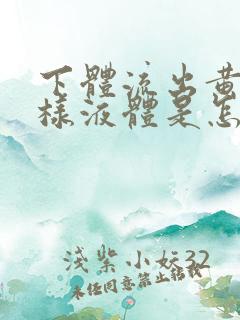 下體流出黃
樣液體是怎
淺紫小妘32
未经同意禁止转载